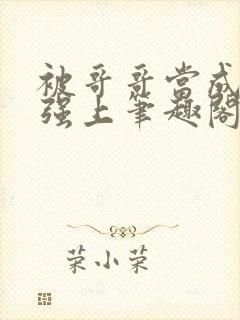 被哥哥当成
强上笔趣阁
荣小荣